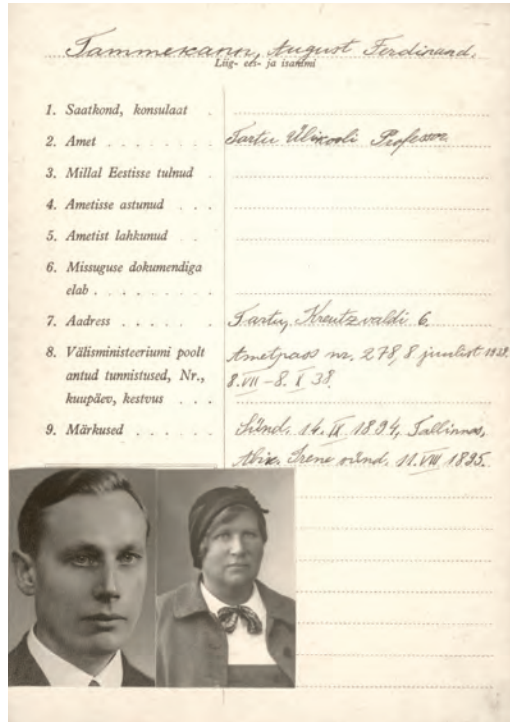 Tammekann, August Ferdinand.
Liig- ees- ja isanimi
1. Saatkond, konsulaat .
2. Amet . . . . . . . . Tartu Ülikooli Professor.
3. Millal Eestisse tulnud .
4. Ametisse astunud . . .
5. Ametist lahkunud . .
6. Missuguse dokumendiga
elab . . . . . . . . .
7. Aadress . . . . . . . Tartu, Kreutzvaldi 6.
8. Välisministeeriumi poolt Ametpass nr. 278, 8 juulist 1938.
antud tunnistused, Nr., 8.VII – 8.X 38.
kuupäev, kestvus . . .
9. Märkused . . . . . . Sünd. 14. IX 1894, Tallinnas,
Abik. Irene sünd. 11. VIII 1895.